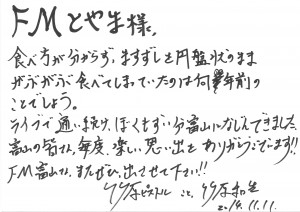 FMとやま様。
食べ方が分からず、ますずしを円盤状のまま
がぶがぶ食べてしまっていたのは何年前の
ことでしょう。
ライブで通い続け、ぼくもずい分富山になじんできました。
富山の皆さん、毎度、楽しい思い出をありがとうございます!!
FM富山さん、またぜひ、出させて下さい!!
竹原ピストル こと、竹原和生
2014.11.11.